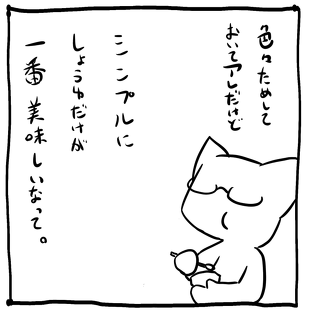 色々ためして
おいてアレだけど
シンプルに
しょうゆだけが
一番美味しいなって。